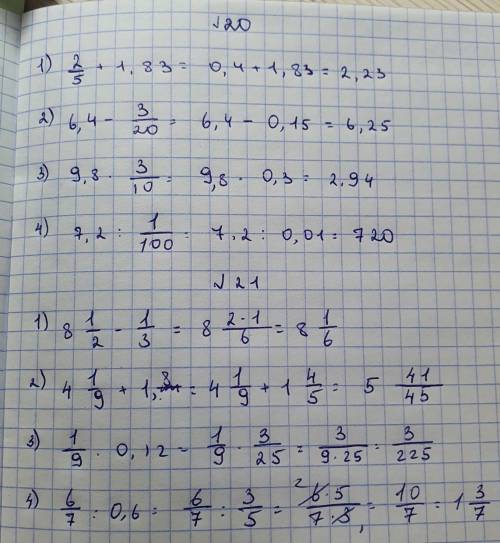 №20
1) 2/5 + 1,83 = 0,4 + 1,83 = 2,23
2) 6,4 - 3/20 = 6,4 - 0,15 = 6,25
3) 9,8 · 3/10 = 9,8 · 0,3 = 2,94
4) 7,2 : 1/100 = 7,2 : 0,01 = 720
№21
1) 8 1/2 - 1/3 = 8 2·1/6 = 8 1/6
2) 4 1/9 + 1,8 = 4 1/9 + 1 4/5 = 5 41/45
3) 1/9 · 0,12 = 1/9 · 3/25 = 3/9·25 = 3/225
4) 6/7 : 0,6 = 6/7 : 3/5 = 2 6·5/7·3 = 10/7 = 1 3/7